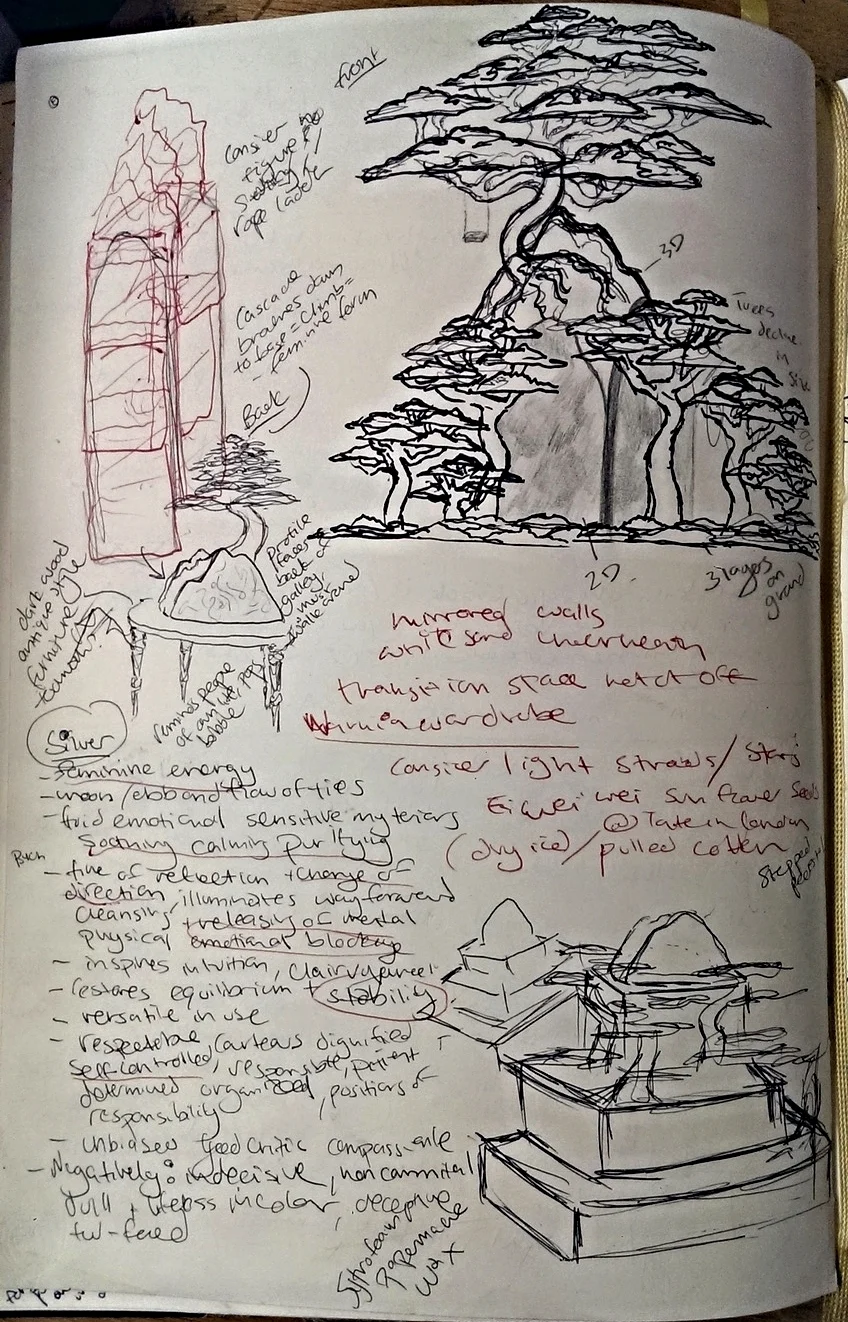 front
Consier
figure
rope ladder
Cascade
braches down
to base = Climb =
- feminine form
Back
3D
Trees
decline
in
size
2D
3 layers on
grand
Profile
faces
back of
galley
must
walk arond
dark wood
antique style
furniture
reminds people
of an
bobble
mirrored walls
white sand underneath
transition stace not ct off
Narnia wardrobe
Consicer light strads / Stars
Ei wei wei Sun flower Seeds
@ Tate in london
(dry ice) / pulled cotten
Stepped
Silver
- feminine energy
- moon / ebb and flow of ties
- fluid emotional sensitive mysterios
Soothing calming purifying
- time of reflection + change of
direction, illuminates way forward
cleansing + releasing of mental
physical emotional blockage
- inspires intuition, Clairvoyance
- restores equilibrium + stability
- versatile in use
- respectable, Corteous dignified
Self controlled, responsible, patient
determined organized, positions of
responsibility
- Unbiased good critic compassionate
- Negatively: indecisive, non commital
dull, lifeless in color, deceptive
two-faced
Styrofoam
Papermache
wax